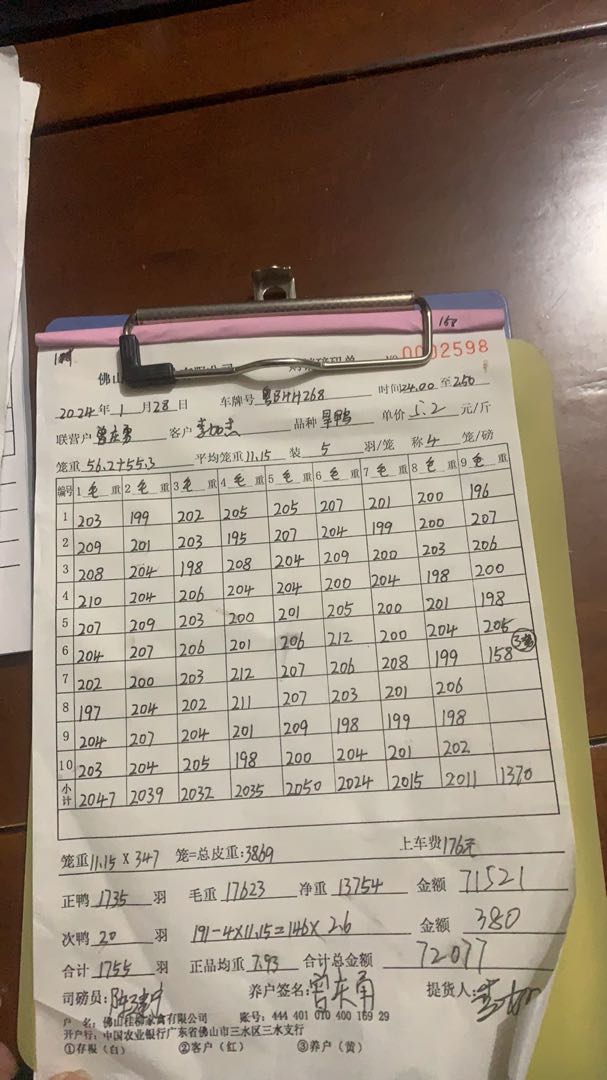 158
佛山
No 0002598
2024年 1 月 28 日 车牌号 粤BHH268 时间 24.00 至 2:50
联营户 曾庆勇 客户 品种 旱鸭 单价 5.2 元/斤
笼重 56.2+55.3 平均笼重 11.15 装 5 羽/笼 称 4 笼/磅
编号 1 毛 重 2 毛 重 3 毛 重 4 毛 重 5 毛 重 6 毛 重 7 毛 重 8 毛 重 9 毛 重
1 203 199 202 205 205 207 201 200 196
2 209 201 203 195 207 204 199 200 207
3 208 204 198 208 204 209 200 203 206
4 210 204 206 204 204 200 204 198 200
5 207 209 203 200 201 205 200 201 198
6 204 207 206 201 206 212 200 204 205
7 202 200 203 212 207 206 208 199 158 3笼
8 197 204 202 211 207 203 201 206
9 204 207 204 201 209 198 199 198
10 203 204 205 198 200 204 201 202
小计 2047 2039 2032 2035 2050 2024 2015 2011 1370
笼重 11.15 × 347 笼=总皮重: 3869 上车费 176元
正鸭 1735 羽 毛重 17623 净重 13754 金额 71521
次鸭 20 羽 191-4×11.15=146× 2.6 金额 380
合计 1755 羽 正品均重 7.93 合计总金额 72077
司磅员: 养户签名: 曾庆勇 提货人:
户 名: 佛山桂柳家禽有限公司 账号: 444 401 010 400 169 29
开户行: 中国农业银行广东省佛山市三水区三水支行
①存根(白) ②客户(红) ③养户(黄)